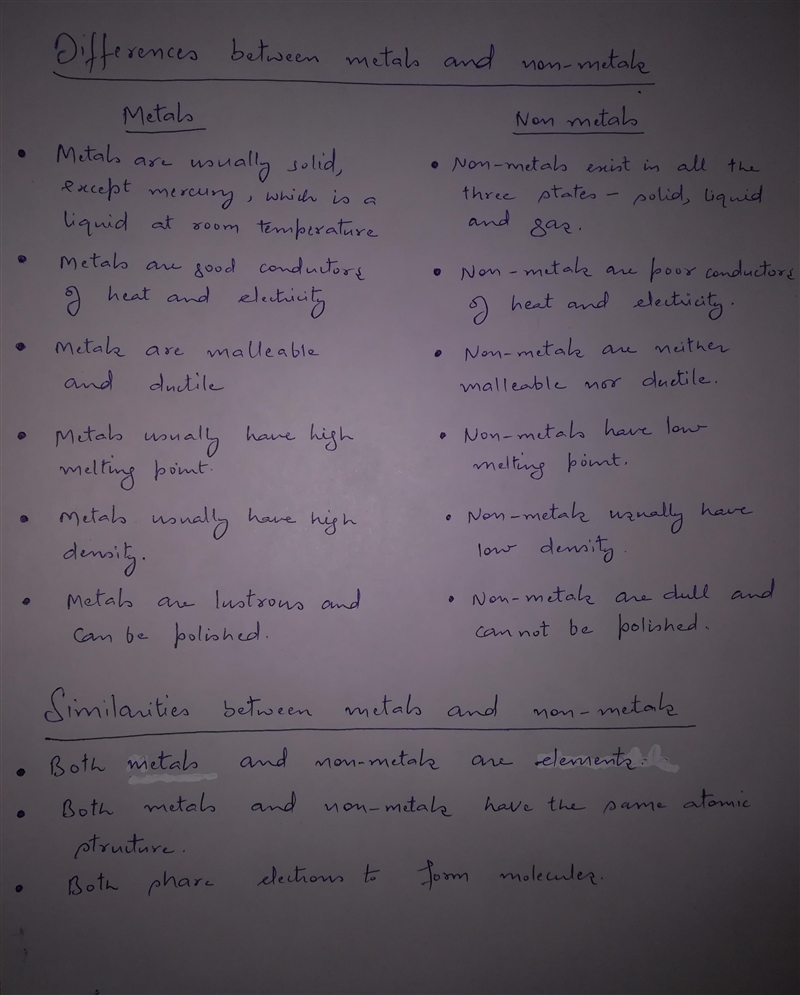 Differences between metals and non-metals
Metals
• Metals are usually solid,
except mercury, which is a
liquid at room temperature
• Metals are good conductors
of heat and electricity
• Metals are malleable
and ductile
• Metals usually have high
melting point.
• Metals usually have high
density.
• Metals are lustrous and
can be polished.
Non metals
• Non-metals exist in all the
three states - solid, liquid
and gas.
• Non-metals are poor conductors
of heat and electricity.
• Non-metals are neither
malleable nor ductile.
• Non-metals have low
melting point.
• Non-metals usually have
low density.
• Non-metals are dull and
cannot be polished.
Similarities between metals and non-metals
• Both metals and non-metals are elements.
• Both metals and non-metals have the same atomic
structure.
• Both share electrons to form molecules.